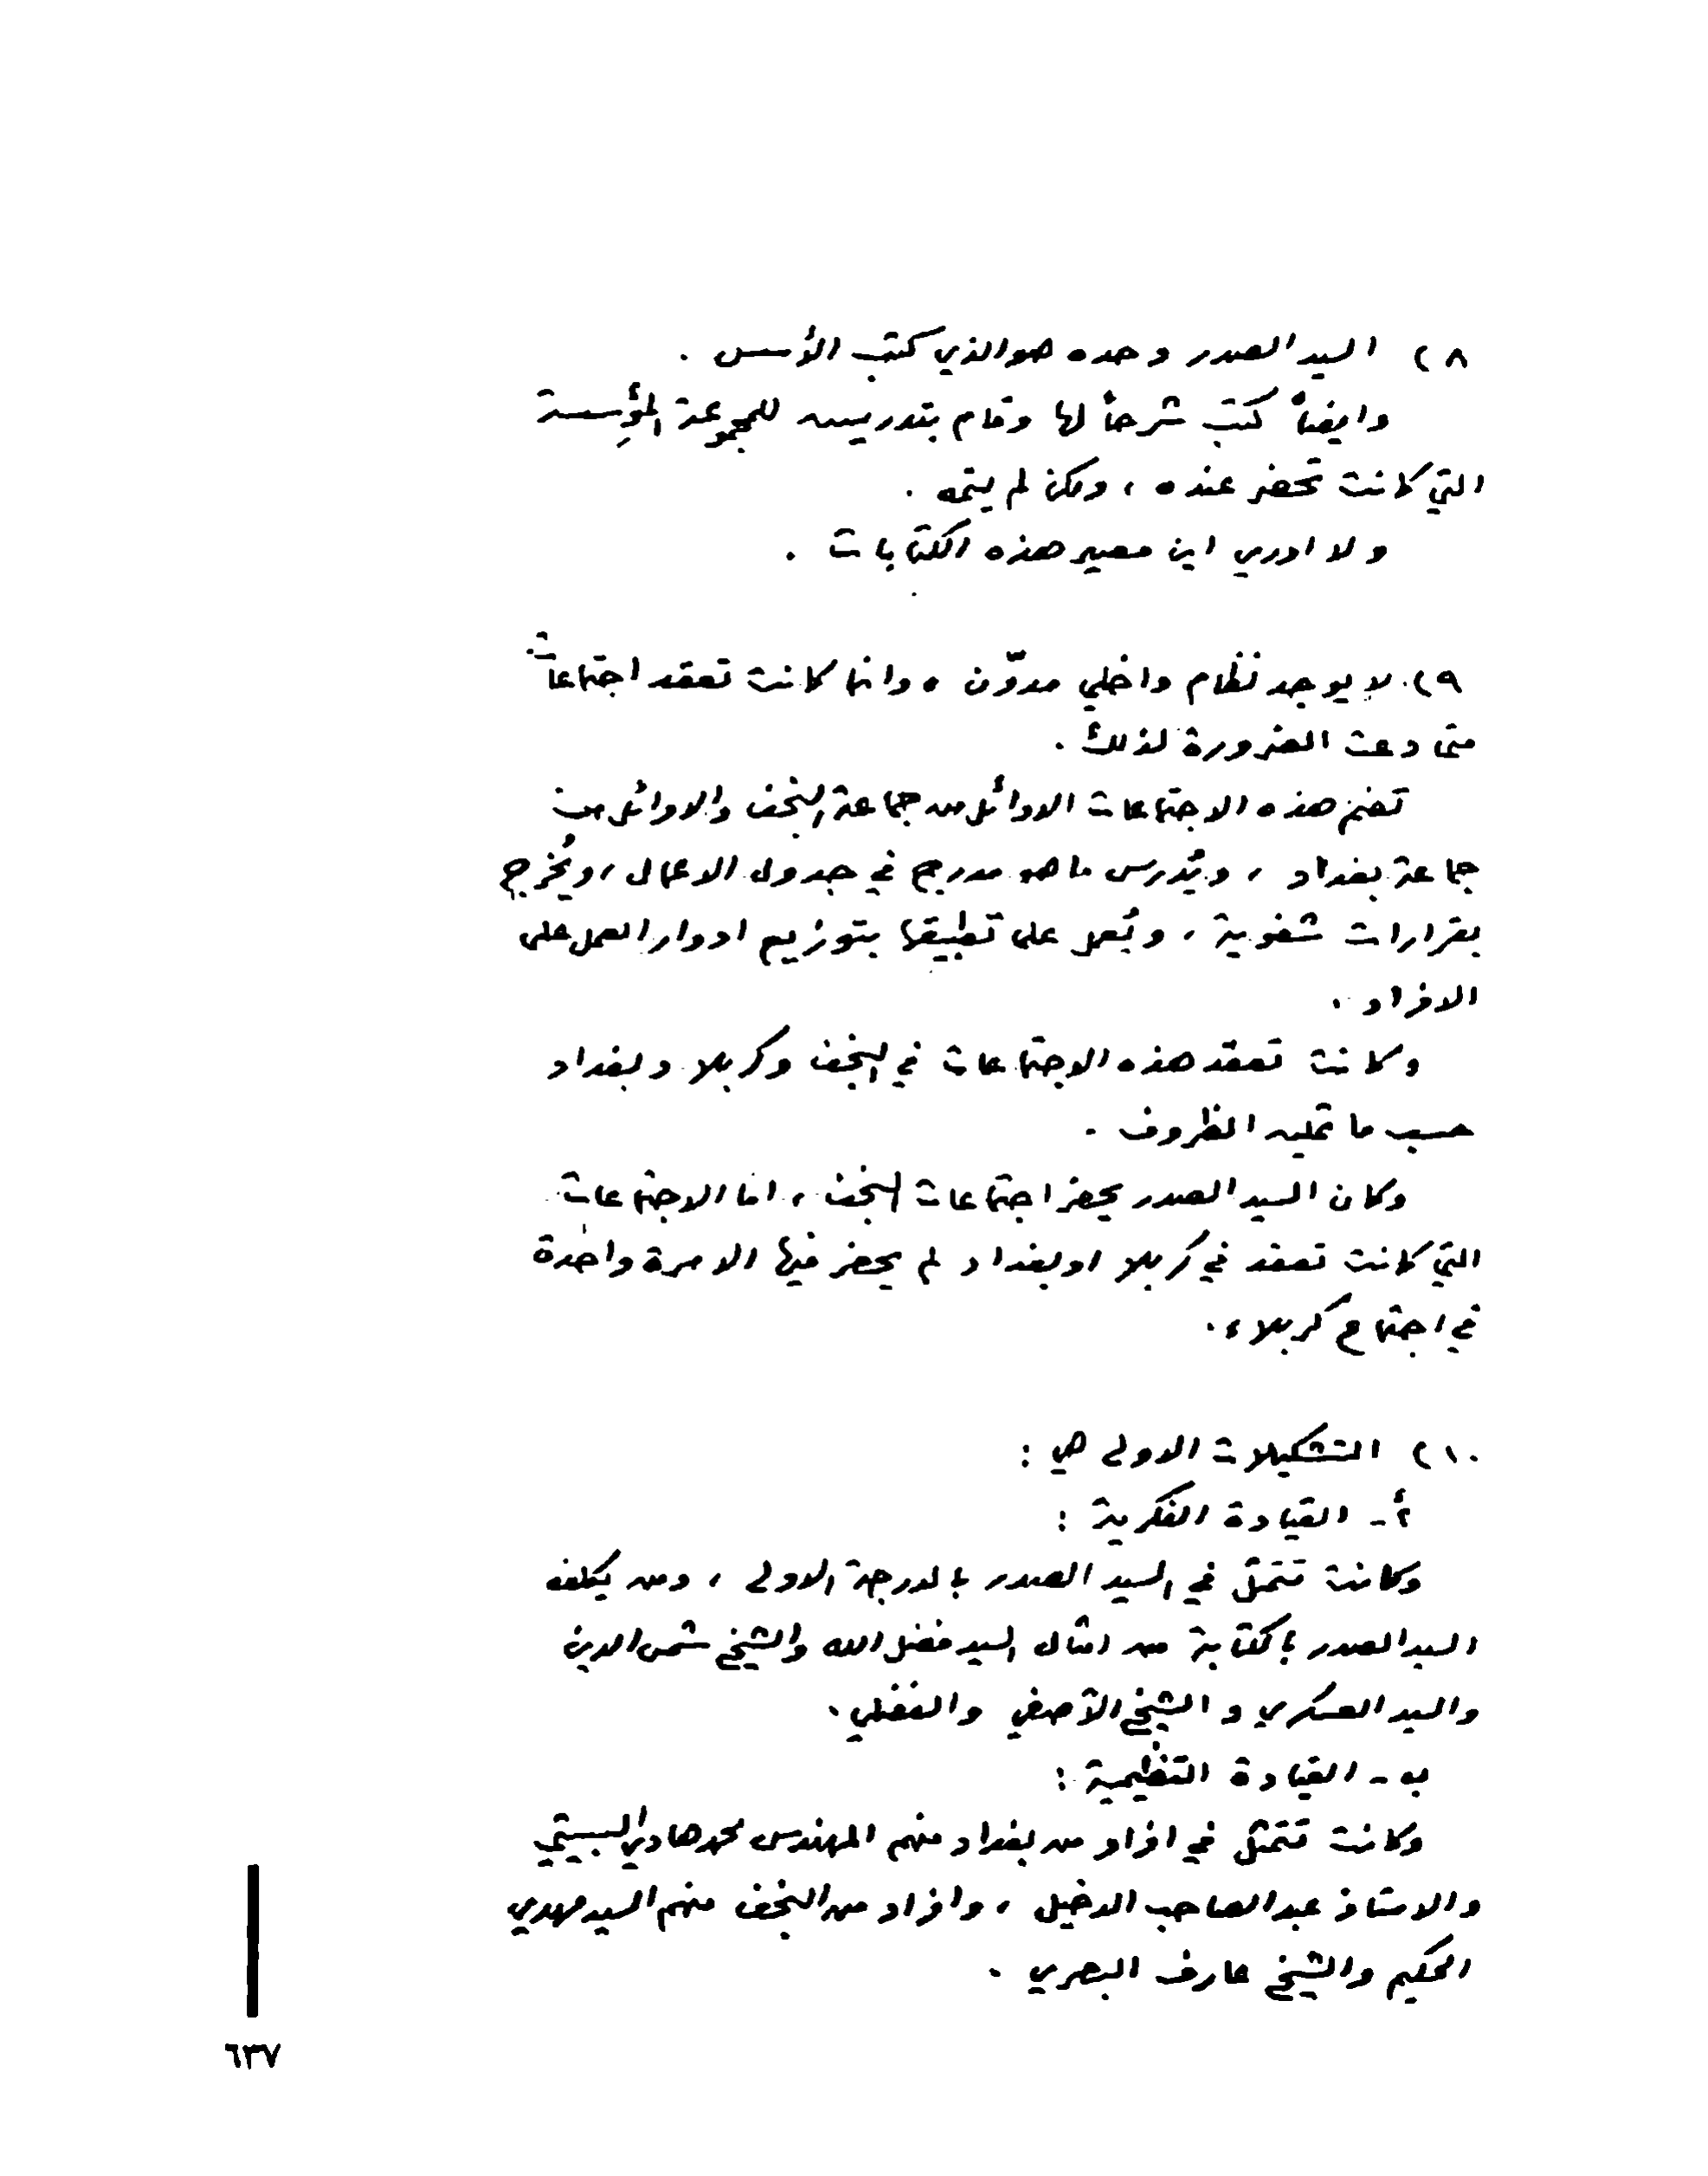 ٨) السيد الصدر وحده هو الذي كتب الأسس .
وايضاً كتب شرحاً لها وقام بتدريسه للمجموعة المؤسِسة
التي كانت تحضر عنده ، ولكن لم يتمه .
ولا ادري اين مصير هذه الكتابات .
٩) لا يوجد نظام داخلي مدوّن ، وانما كانت تعقد اجتماعات
متى دعت الضرورة لذلك .
تضم هذه الاجتماعات الاوائل من جماعة النجف والاوائل من
جماعة بغداد ، ويُدرس ما هو مدرج في جدول الاعمال ، ويُخرج
بقرارات شفوية ، ويُعمل على تطبيقها بتوزيع ادوار العمل على
الافراد .
وكانت تعقد هذه الاجتماعات في النجف وكربلا وبغداد
حسب ما تمليه الظروف .
وكان السيد الصدر يحضر اجتماعات النجف ، اما الاجتماعات
التي كانت تعقد في كربلا او بغداد لم يحضر فيها الا مرة واحدة
في اجتماع كربلاء .
١٠) التشكيلات الاولى هي :
أ - القيادة الفكرية :
وكانت تتمثل في السيد الصدر بالدرجة الاولى ، ومن يكلفه
السيد الصدر بالكتابة من امثال السيد فضل الله والشيخ شمس الدين
والسيد العسكري و الشيخ الآصفي والفضلي .
ب - القيادة التنظيمية :
وكانت تتمثل في افراد من بغداد منهم المهندس محمد هادي السبيتي
والاستاذ عبد الصاحب الدخيل ، وافراد من النجف منهم السيد مهدي
الحكيم والشيخ عارف البصري .
٦٣٧